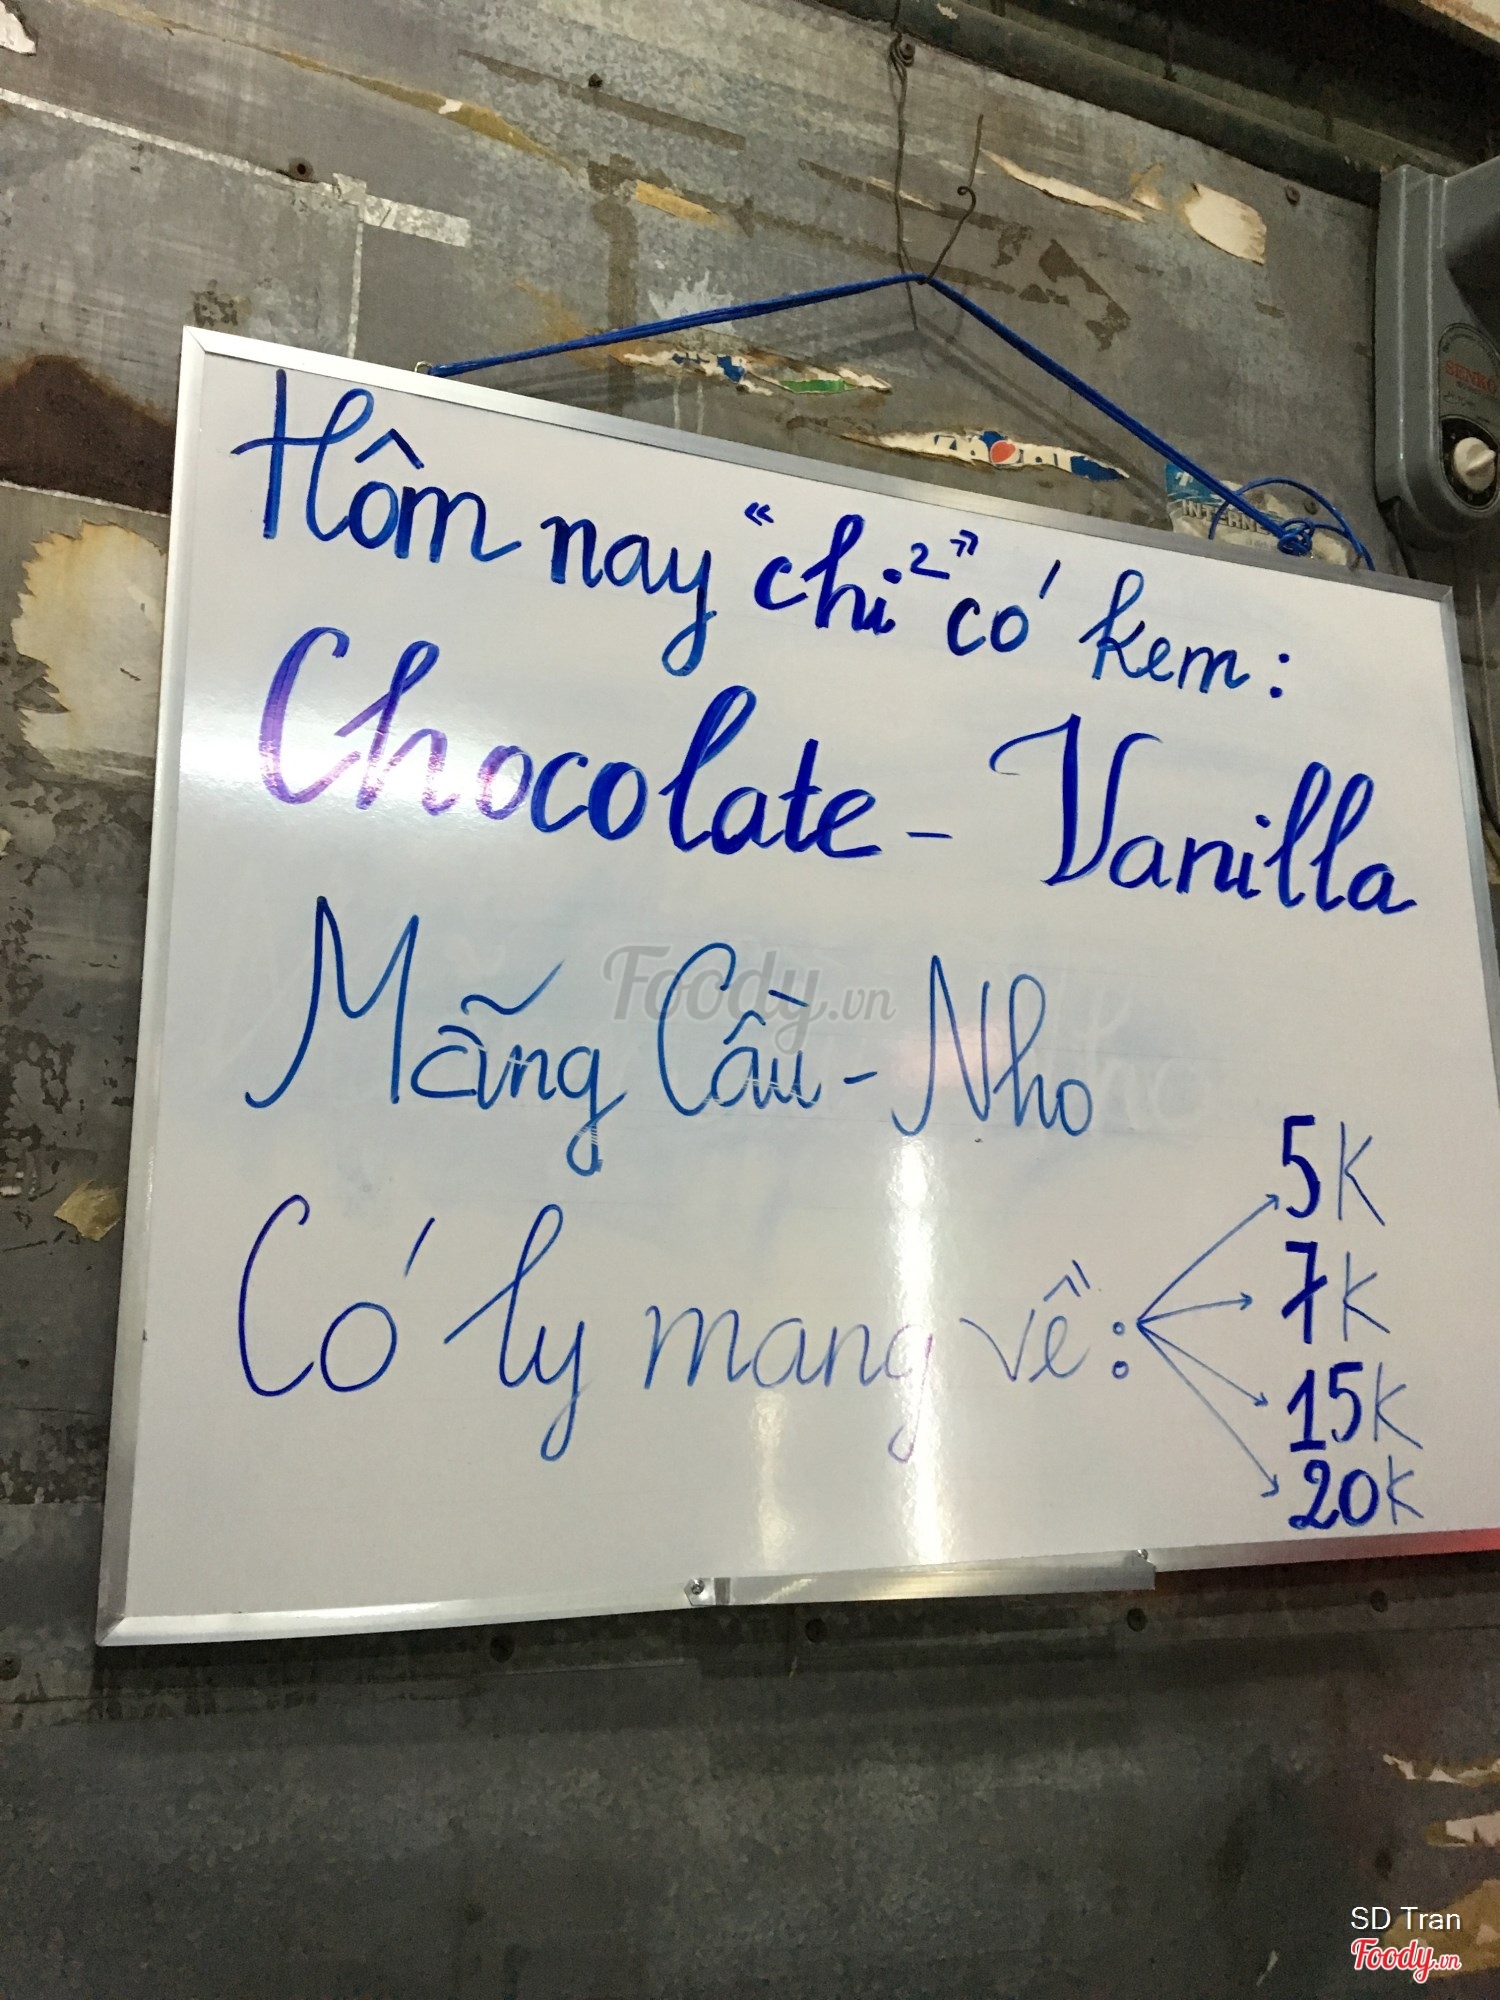 Hôm nay "chỉ" có kem:
Chocolate - Vanilla
Mãng Cầu - Nho
Có ly mang về:
5K
7K
15K
20K
Foody.vn
SENKO
INTERN
SD Tran
Foody.vn